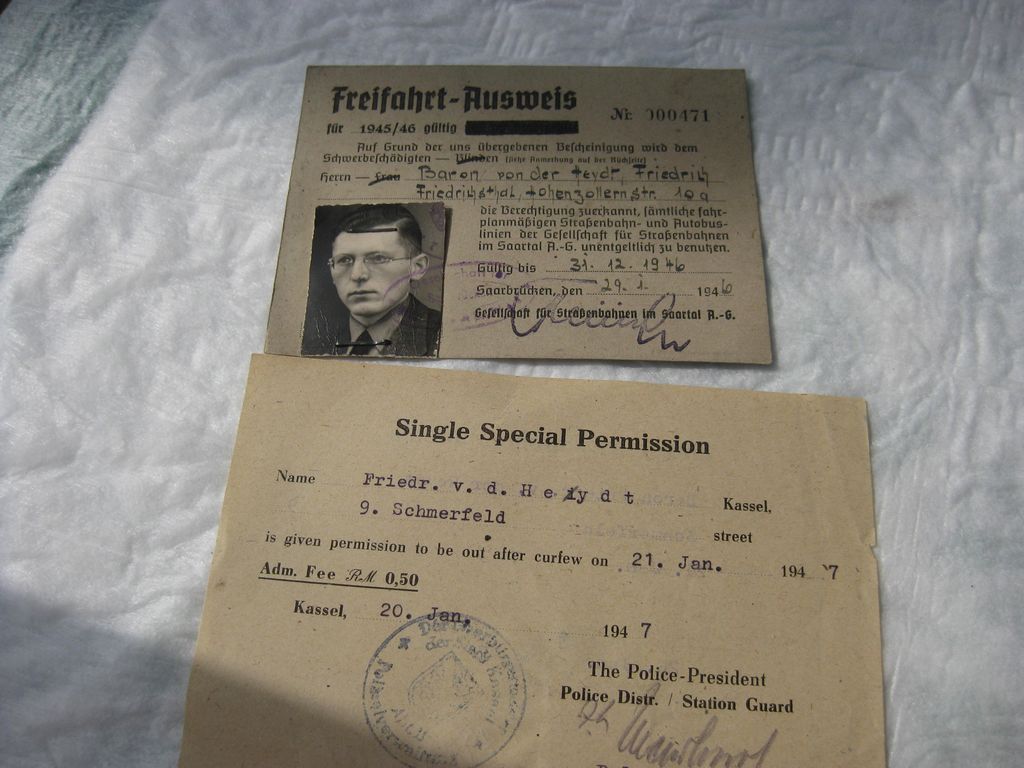 Freifahrt-Ausweis
Nr. 000471
für 1945/46 gültig
Auf Grund der uns übergebenen Bescheinigung wird dem
Schwerbeschädigten — Blinden (siehe Anmerkung auf der Rückseite)
Herrn — Frau Baron von der Heydt, Friedrich
Friedrichsthal, Hohenzollernstr. 10a
die Berechtigung zuerkannt, sämtliche fahr-
planmäßigen Straßenbahn- und Autobus-
linien der Gesellschaft für Straßenbahnen
im Saartal A.-G. unentgeltlich zu benutzen.
Gültig bis 31. 12. 1946
Saarbrücken, den 29. 1. 1946
Gesellschaft für Straßenbahnen im Saartal A.-G.
Single Special Permission
Name Friedr. v. d. Heydt Kassel,
9. Schmerfeld street
is given permission to be out after curfew on 21. Jan. 194 7
Adm. Fee RM 0,50
Kassel, 20. Jan. 194 7
The Police-President
Police Distr. / Station Guard
Der Oberbürgermeister
der Stadt Kassel